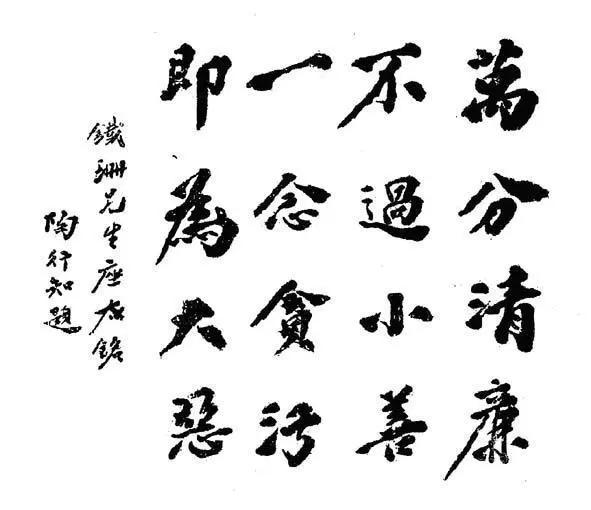 萬分清廉
不過小善
一念貪污
即為大惡
鐵珊先生座右銘
陶行知題